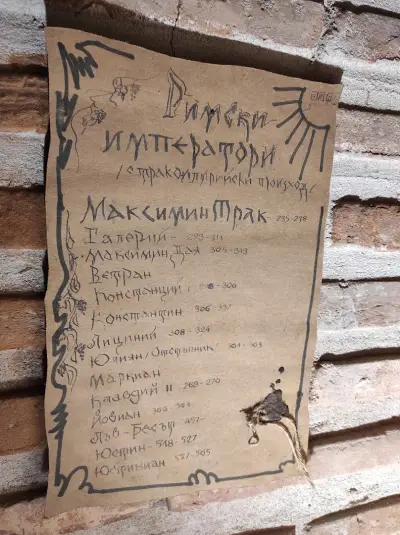 Римски
императори
/с тракоилирийски произход/
Максимин Трак 235-238
Галерий - 293-311
Максимин Дая 305-313
Ветран
Констанций I 306
Константин 306-337
Лициний 308-324
Юлиан /Отстъпник/
Маркиан
Клавдий II 268-270
Йовиан 363-364
Лъв-Бесът 457-
Юстин - 518-527
Юстиниан 527-565